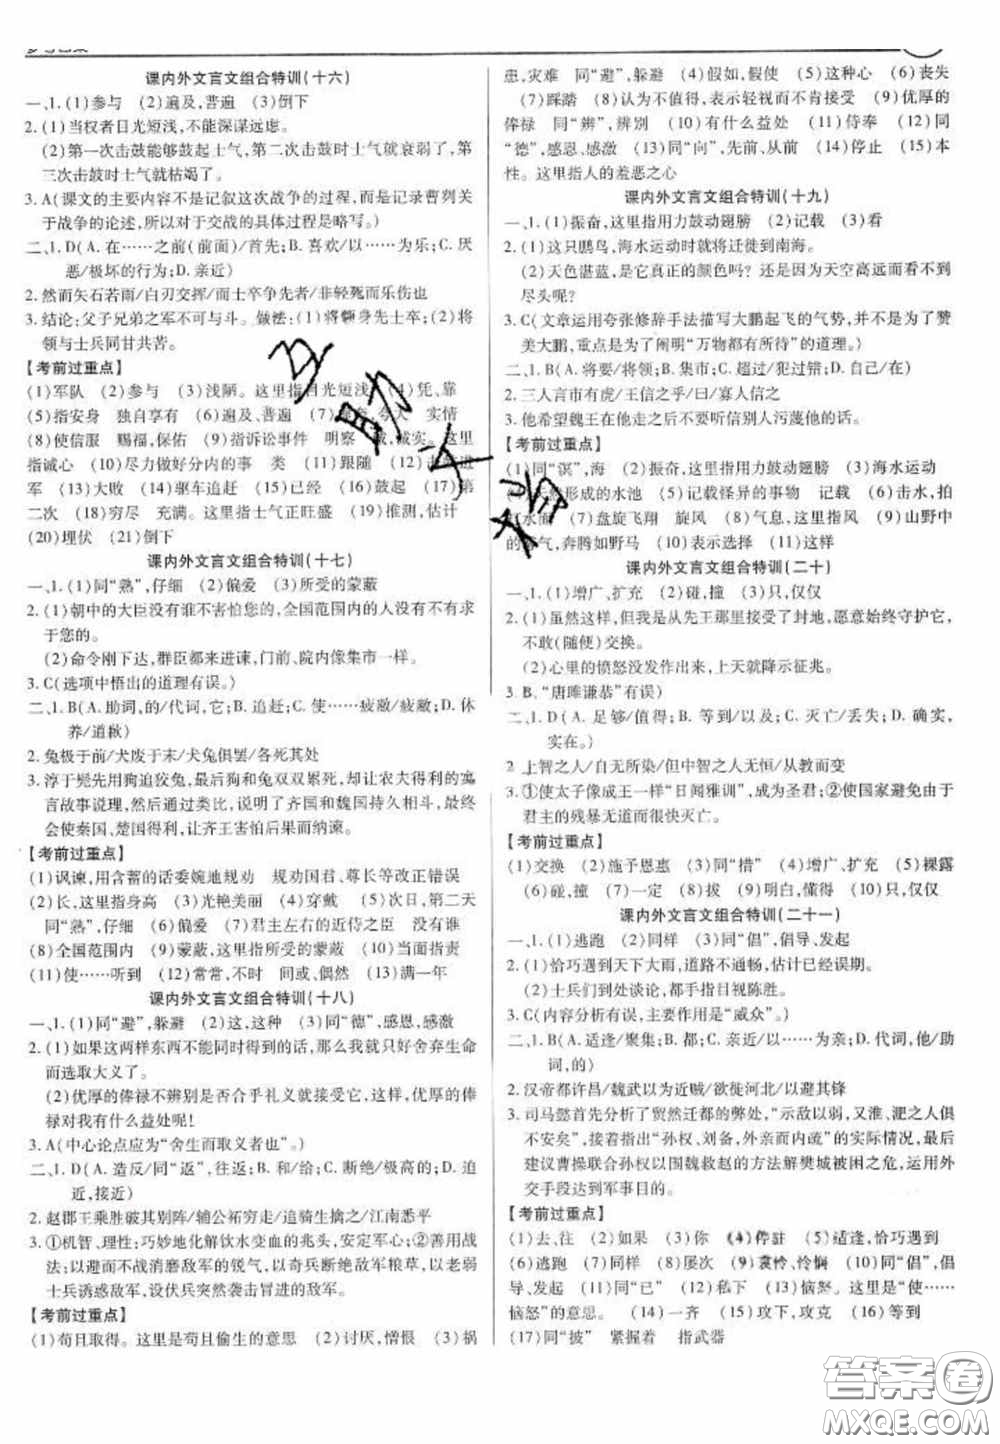 参考答案
课内外文言文组合特训(十六)
一、1.(1)参与 (2)遍及,普遍 (3)倒下
2.(1)当权者目光短浅,不能深谋远虑。
(2)第一次击鼓能够鼓起士气,第二次击鼓时士气就衰弱了,第
三次击鼓时士气就枯竭了。
3. A(课文的主要内容不是记叙这次战争的过程,而是记录曹刿关
于战争的论述,所以对于交战的具体过程是略写。)
二、1. D(A. 在……之前(前面)/首先;B. 喜欢/以……为乐;C. 厌
恶/极坏的行为;D. 亲近)
2. 然而矢石若雨/白刃交挥/而士卒争先者/非轻死而乐伤也
3. 结论:父子兄弟之军不可与斗。做法:(1)将领身先士卒;(2)将
领与士兵同甘共苦。
【考前过重点】
(1)军队 (2)参与 (3)浅陋。这里指目光短浅 (4)凭,靠
(5)指安身 独自享有 (6)遍及、普遍 (7)
实情
(8)使信服 赐福,保佑 (9)指诉讼事件 明察 诚实。这里
指诚心 (10)尽力做好分内的事 类 (11)跟随 (12)击鼓进
军 (13)大败 (14)驱车追赶 (15)已经 (16)鼓起 (17)第
二次 (18)穷尽 充满。这里指士气正旺盛 (19)推测,估计
(20)埋伏 (21)倒下
课内外文言文组合特训(十七)
一、1.(1)同“熟”,仔细 (2)偏爱 (3)所受的蒙蔽
2.(1)朝中的大臣没有谁不害怕您的,全国范围内的人没有不有求
于您的。
(2)命令刚下达,群臣都来进谏,门前、院内像集市一样。
3. C(选项中悟出的道理有误。)
二、1. B(A. 助词,的/代词,它;B. 追赶;C. 使……疲敝/疲敝;D. 休
养/道歉)
2. 兔极于前/犬废于末/犬兔俱罢/各死其处
3. 淳于髡先用狗追狡兔,最后狗和兔双双累死,却让农夫得利的寓
言故事说理,然后通过类比,说明了齐国和魏国持久相斗,最终
会使秦国、楚国得利,让齐王害怕后果而纳谏。
【考前过重点】
(1)讽谏,用含蓄的话委婉地规劝 规劝国君、尊长等改正错误
(2)长,这里指身高 (3)光艳美丽 (4)穿戴 (5)次日,第二天
同“熟”,仔细 (6)偏爱 (7)君主左右的近侍之臣 没有谁
(8)全国范围内 (9)蒙蔽,这里指所受的蒙蔽 (10)当面指责
(11)使……听到 (12)常常,不时 间或、偶然 (13)满一年
课内外文言文组合特训(十八)
一、1.(1)同“避”,躲避 (2)这,这种 (3)同“德”,感恩,感激
2.(1)如果这两样东西不能同时得到的话,那么我就只好舍弃生命
而选取大义了。
(2)优厚的俸禄不辨别是否合乎礼义就接受了,这样,优厚的俸
禄对我有什么益处呢!
3. A(中心论点应为“舍生而取义者也”。)
二、1. D(A. 造反/同“返”,往返;B. 和/给;C. 断绝/极高的;D. 迫
近,接近)
2. 赵郡王乘胜破其别阵/辅公祏穷走/追骑生擒之/江南悉平
3. ①机智、理性;巧妙地化解饮水变血的兆头,安定军心;②善用战
法;以避而不战消磨敌军的锐气,以奇兵断绝敌军粮草,以老弱
士兵诱惑敌军,设伏兵突然袭击冒进的敌军。
【考前过重点】
(1)苟且取得。这里是苟且偷生的意思 (2)讨厌,憎恨 (3)祸
患,灾难 同“避”,躲避 (4)假如,假使 (5)这种心 (6)丧失
(7)踩踏 (8)认为不值得,表示轻视而不肯接受 (9)优厚的
俸禄 同“辨”,辨别 (10)有什么益处 (11)侍奉 (12)同
“德”,感恩、感激 (13)同“向”,先前、从前 (14)停止 (15)本
性。这里指人的羞恶之心
课内外文言文组合特训(十九)
一、1.(1)振奋,这里指用力鼓动翅膀 (2)记载 (3)看
2.(1)这只鹏鸟,海水运动时就将迁徙到南海。
(2)天色湛蓝,是它真正的颜色吗？还是因为天空高远而看不到
尽头呢?
3. C(文章运用夸张修辞手法描写大鹏起飞的气势,并不是为了赞
美大鹏,重点是为了阐明“万物都有所待”的道理。)
二、1. B(A. 将要/将领;B. 集市;C. 超过/犯过错;D. 已经/停止)
2. 三人言市有虎/王信之乎/曰/寡人信之
3. 他希望魏王在他走之后不要听信别人污蔑他的话。
【考前过重点】
(1)同“溟”,海 (2)振奋,这里指用力鼓动翅膀 (3)海水运动
然形成的水池 (5)记载怪异的事物 记载 (6)击水,拍
水面 (7)盘旋飞翔 旋风 (8)气息,这里指风 (9)山野中
的雾气,奔腾如野马 (10)表示选择 (11)这样
课内外文言文组合特训(二十)
一、1.(1)增广、扩充 (2)碰,撞 (3)只,仅仅
2.(1)虽然这样,但我是从先王那里接受了封地,愿意始终守护它,
不敢(随便)交换。
(2)心里的愤怒没发作出来,上天就降示征兆。
3. B.“唐雎谦恭”有误)
二、1. D(A. 足够/值得;B. 等到/以及;C. 灭亡/丢失;D. 确实,
实在。)
2 上智之人/自无所染/但中智之人无恒/从教而变
3. ①使太子像成王一样“日闻雅训”,成为圣君;②使国家避免由于
君主的残暴无道而很快灭亡。
【考前过重点】
(1)交换 (2)施予恩惠 (3)同“措” (4)增广、扩充 (5)裸露
(6)碰,撞 (7)一定 (8)拔 (9)明白,懂得 (10)只,仅仅
课内外文言文组合特训(二十一)
一、1.(1)逃跑 (2)同样 (3)同“倡”,倡导、发起
2.(1)恰巧遇到天下大雨,道路不通畅,估计已经误期。
(2)士兵们到处谈论,都手指目视陈胜。
3. C(内容分析有误,主要作用是“威众”。)
二、1. B(A. 适逢/聚集;B. 都;C. 亲近/以……为单位;D. 代词,他/
的)
2. 汉帝都许昌/魏武以为近贼/欲徙河北/以避其锋
3. 司马懿首先分析了贸然迁都的弊处,“示敌以弱,又淮、沔之人俱
不安矣”,接着指出“孙权、刘备,外亲而内疏”的实际情况,最后
建议曹操联合孙权以围魏救赵的方法解樊城被困之危,运用外
交手段达到军事目的。
【考前过重点】
(1)去、往 (2)如果 (3)你 (4)停驻 (5)适逢,恰巧遇到
(6)逃跑 (7)同样 (8)屡次 (9)哀怜,怜悯 (10)同“倡”,倡
导、发起 (11)同“已” (12)私下 (13)恼怒。这里是“使……
恼怒”的意思。 (14)一齐 (15)攻下,攻克 (16)等到
(17)同“披” 紧握着 指武器
答案卷
MXQE.COM